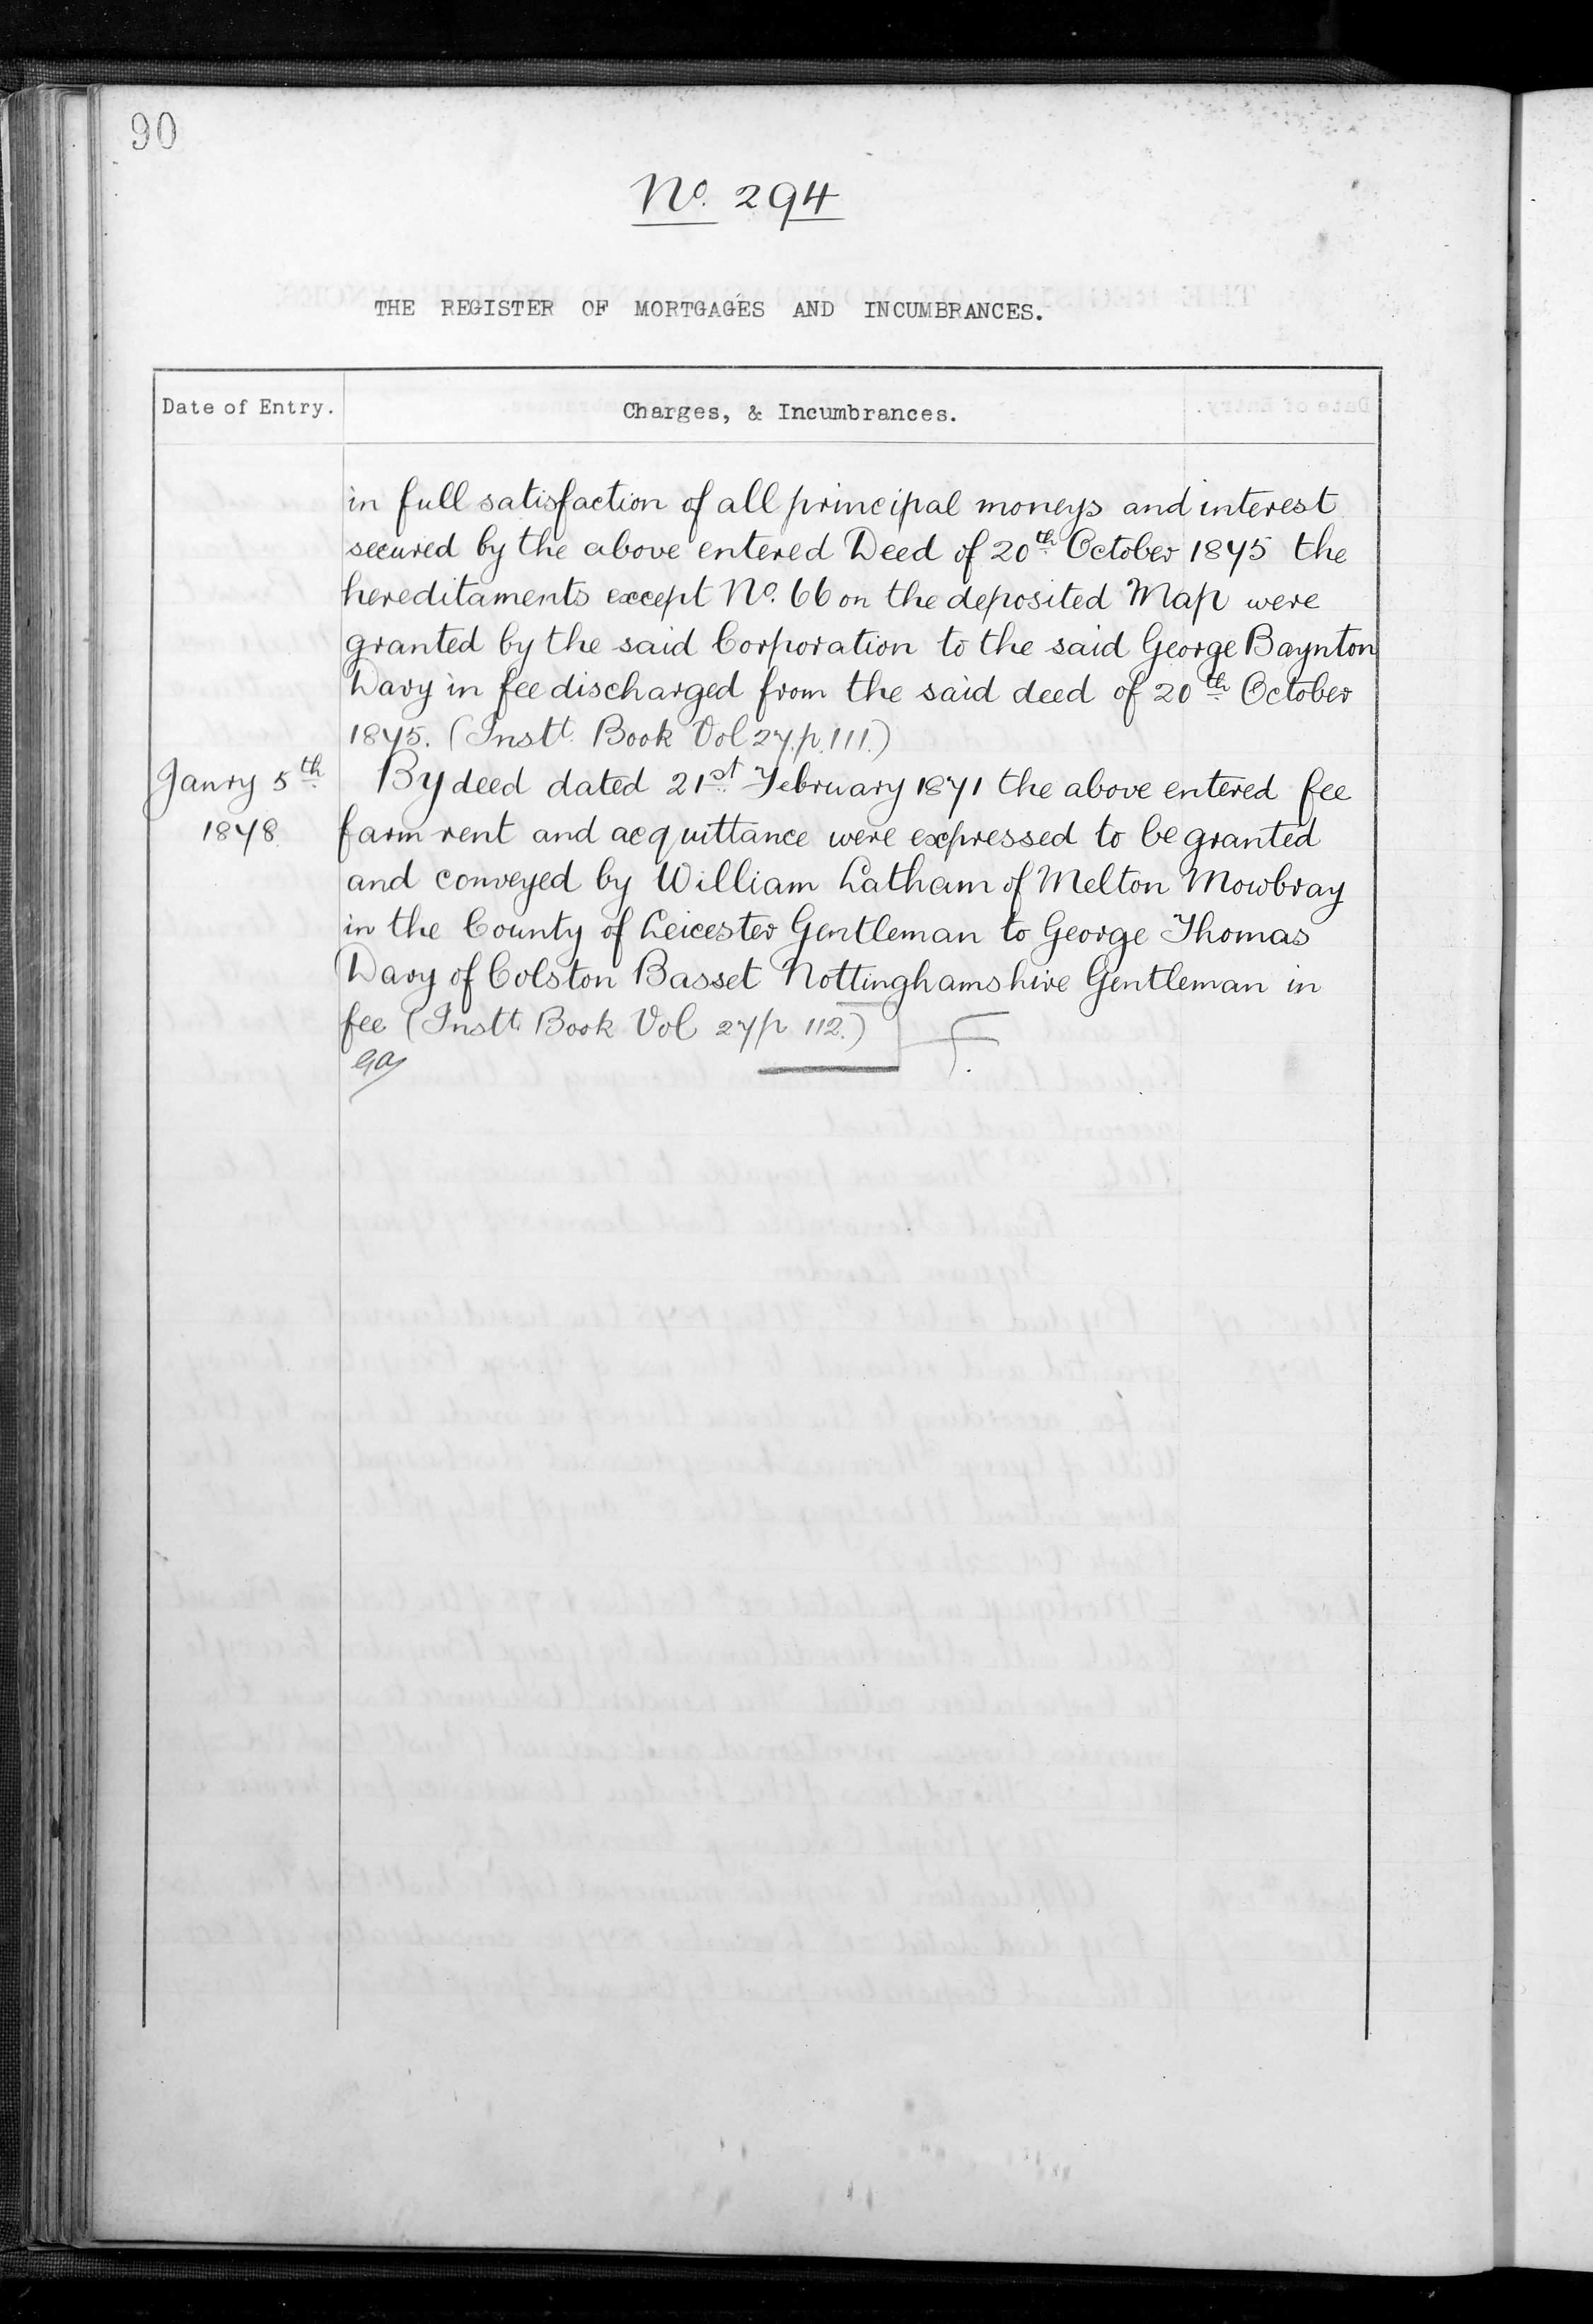 90
No. 294
THE REGISTER OF MORTGAGES AND INCUMBRANCES.
Date of Entry.
Charges, & Incumbrances.
in full satisfaction of all principal moneys and interest
secured by the above entered Deed of 20th October 1875 the
hereditaments except No. 66 on the deposited Map were
granted by the said Corporation to the said George Baynton
Davy in fee discharged from the said deed of 20th October
1875. (Instt. Book Vol 27. p. 111.)
Janry 5th
1878.
By deed dated 21st February 1871 the above entered fee
farm rent and acquittance were expressed to be granted
and conveyed by William Latham of Melton Mowbray
in the County of Leicester Gentleman to George Thomas
Davy of Colston Basset Nottinghamshire Gentleman in
fee (Instt. Book Vol 27 p 112.)